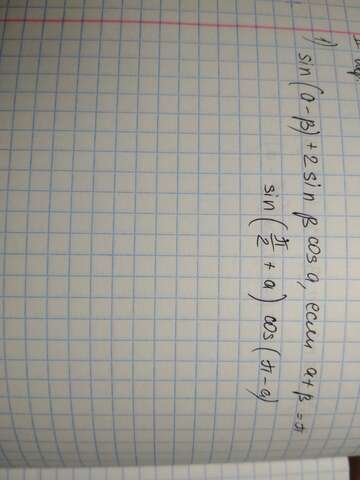 1) sin(α-β)+2 sin β cos α, если α+β=π
sin(π/2 + α) cos(π-α)